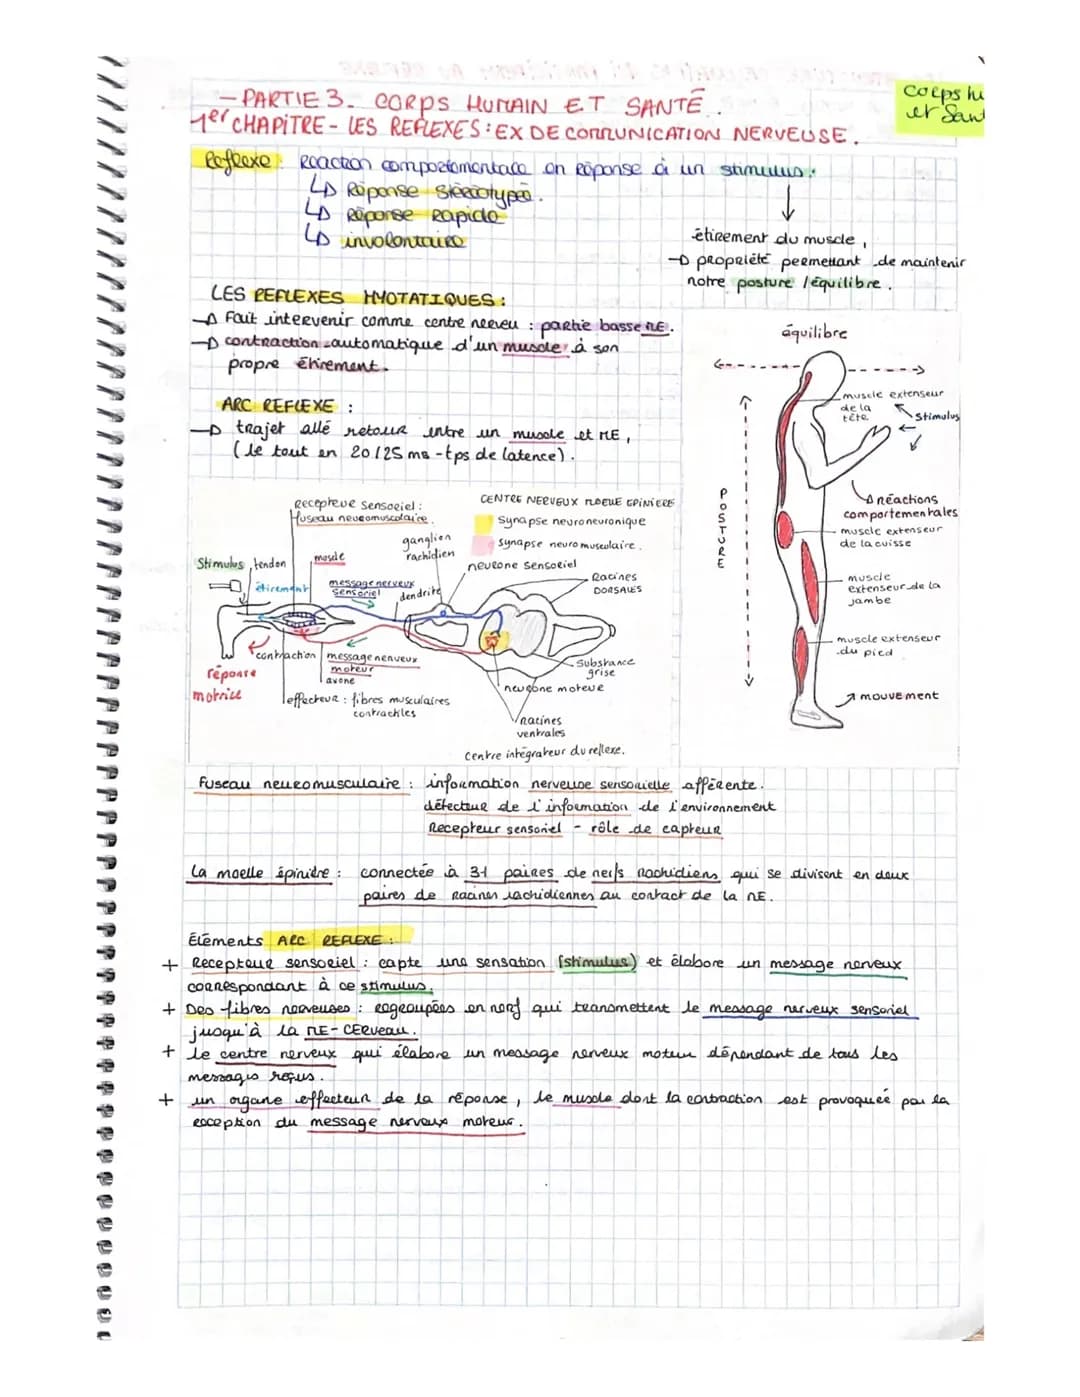 - PARTIE 3. CORPS HUMAIN ET SANTÉ.
1er CHAPITRE - LES REFLEXES : EX DE COMMUNICATION NERVEUSE.
corps hu
et San
Reflexe : Reaction comportementale en Réponse à un stimulus.
↳ Réponse stéréotypée.
↳ Réponse Rapide
↳ involontaire
étirement du muscle,
→ propriété permettant de maintenir
notre posture / équilibre.
LES REFLEXES MYOTATIQUES :
→ Fait intervenir comme centre nerveu : partie basse ME.
→ contraction automatique d'un muscle à son
propre étirement.
ARC REFLEXE :
→ trajet allé retour entre un muscle et ME,
(le tout en 20/25 ms - tps de latence).
équilibre
muscle extenseur
de la
tête
Stimulus
réactions
comportementales
POSTURE
muscle extenseur
de la cuisse
muscle
extenseur de la
jambe
muscle extenseur
du pied
mouvement
Recepteur Sensoriel :
fuseau neuromusculaire.
CENTRE NERVEUX MOELLE EPINIERE
Synapse neuroneuronique
synapse neuromusculaire.
ganglion
rachidien
neurone sensoriel
Stimulus
tendon
muscle
étirement
message nerveux
sensoriel
dendrite
Racines
DORSALES
contraction
message nerveux
moteur
axone
réponse
motrice
effecteur : fibres musculaires
contractiles
Substance
grise
neurone moteur
racines
ventrales
Centre intégrateur du reflexe.
Fuseau neuromusculaire : information nerveuse sensorielle afférente.
détecteur de l'information de l'environnement
Recepteur sensoriel - rôle de capteur
La moelle épinière : connectée à 31 paires de nerfs rachidiens qui se divisent en deux
paires de Racines rachidiennes au contact de la ME.
Éléments ARC REFLEXE :
+ Recepteur sensoriel : capte une sensation (stimulus) et élabore un message nerveux
correspondant à ce stimulus.
+ Des fibres nerveuses : regroupées en nerf qui transmettent le message nerveux sensoriel
jusqu'à la ME - CERveau.
+ le centre nerveux qui élabore un message nerveux moteur dépendant de tous les
messages reçus.
+ un organe effecteur de la réponse, le muscle dont la contraction est provoquée par la
reception du message nerveux moteur.